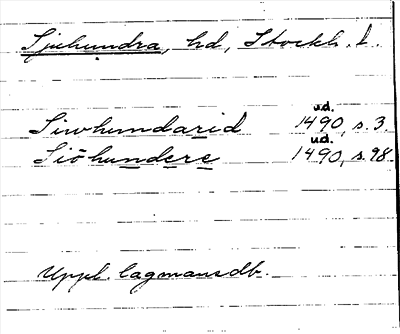 Sjuhundra, hd, Stockh. l.
ud.
Siwhundarid 1490, s. 3.
ud.
Siöhundere 1490, s. 98.
Uppl. lagmansdb.